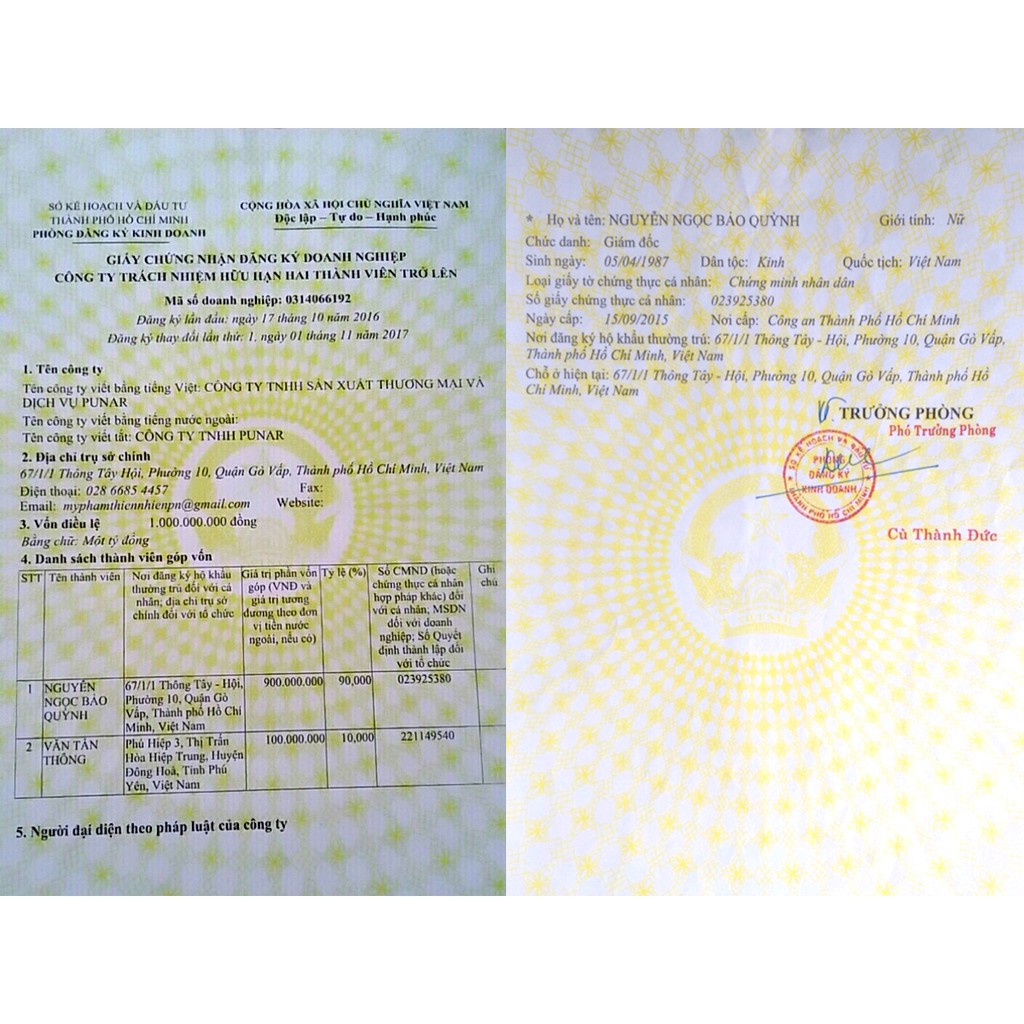 SỞ KẾ HOẠCH VÀ ĐẦU TƯ
THÀNH PHỐ HỒ CHÍ MINH
PHÒNG ĐĂNG KÝ KINH DOANH
CỘNG HÒA XÃ HỘI CHỦ NGHĨA VIỆT NAM
Độc lập – Tự do – Hạnh phúc
GIẤY CHỨNG NHẬN ĐĂNG KÝ DOANH NGHIỆP
CÔNG TY TRÁCH NHIỆM HỮU HẠN HAI THÀNH VIÊN TRỞ LÊN
Mã số doanh nghiệp: 0314066192
Đăng ký lần đầu: ngày 17 tháng 10 năm 2016
Đăng ký thay đổi lần thứ: 1, ngày 01 tháng 11 năm 2017
1. Tên công ty
Tên công ty viết bằng tiếng Việt: CÔNG TY TNHH SẢN XUẤT THƯƠNG MẠI VÀ
DỊCH VỤ PUNAR
Tên công ty viết bằng tiếng nước ngoài:
Tên công ty viết tắt: CÔNG TY TNHH PUNAR
2. Địa chỉ trụ sở chính
67/1/1 Thông Tây Hội, Phường 10, Quận Gò Vấp, Thành phố Hồ Chí Minh, Việt Nam
Điện thoại: 028 6685 4457 Fax:
Email: myphamthiennhienpn@gmail.com Website:
3. Vốn điều lệ 1.000.000.000 đồng
Bằng chữ: Một tỷ đồng
4. Danh sách thành viên góp vốn
STT
Tên thành viên
Nơi đăng ký hộ khẩu
thường trú đối với cá
nhân; địa chỉ trụ sở
chính đối với tổ chức
Giá trị phần vốn
góp (VNĐ và
giá trị tương
đương theo đơn
vị tiền nước
ngoài, nếu có)
Tỷ lệ (%)
Số CMND (hoặc
chứng thực cá nhân
hợp pháp khác) đối
với cá nhân; MSDN
đối với doanh
nghiệp; Số Quyết
định thành lập đối
với tổ chức
Ghi
chú
1
NGUYỄN
NGỌC BẢO
QUỲNH
67/1/1 Thông Tây - Hội,
Phường 10, Quận Gò
Vấp, Thành phố Hồ Chí
Minh, Việt Nam
900.000.000
90,000
023925380
2
VĂN TẤN
THÔNG
Phú Hiệp 3, Thị Trấn
Hòa Hiệp Trung, Huyện
Đông Hoà, Tỉnh Phú
Yên, Việt Nam
100.000.000
10,000
221149540
5. Người đại diện theo pháp luật của công ty
* Họ và tên: NGUYỄN NGỌC BẢO QUỲNH Giới tính: Nữ
Chức danh: Giám đốc
Sinh ngày: 05/04/1987 Dân tộc: Kinh Quốc tịch: Việt Nam
Loại giấy tờ chứng thực cá nhân: Chứng minh nhân dân
Số giấy chứng thực cá nhân: 023925380
Ngày cấp: 15/09/2015 Nơi cấp: Công an Thành Phố Hồ Chí Minh
Nơi đăng ký hộ khẩu thường trú: 67/1/1 Thông Tây - Hội, Phường 10, Quận Gò Vấp,
Thành phố Hồ Chí Minh, Việt Nam
Chỗ ở hiện tại: 67/1/1 Thông Tây - Hội, Phường 10, Quận Gò Vấp, Thành phố Hồ
Chí Minh, Việt Nam
TRƯỞNG PHÒNG
Phó Trưởng Phòng
SỞ KẾ HOẠCH VÀ ĐẦU TƯ
PHÒNG
ĐĂNG KÝ
KINH DOANH
THÀNH PHỐ HỒ CHÍ MINH
Cù Thành Đức